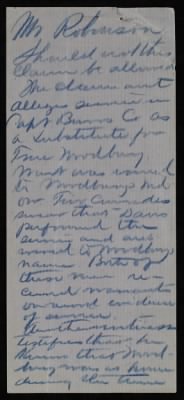 Mr Robinson
Should not this
Claim be allowed
The claimant
alleges service in
Capt Burns Co as
a Substitute for
True Woodbury
Want was issued
to Woodbury's wid
ow Two Comrades
swear that Davis
performed the
service and ans
wered to Woodbury
name Both of
these men re
ceived warrants
on record evidence
of service.
Another witness
testifies that he
knows that Wood
bury was at home
during the time